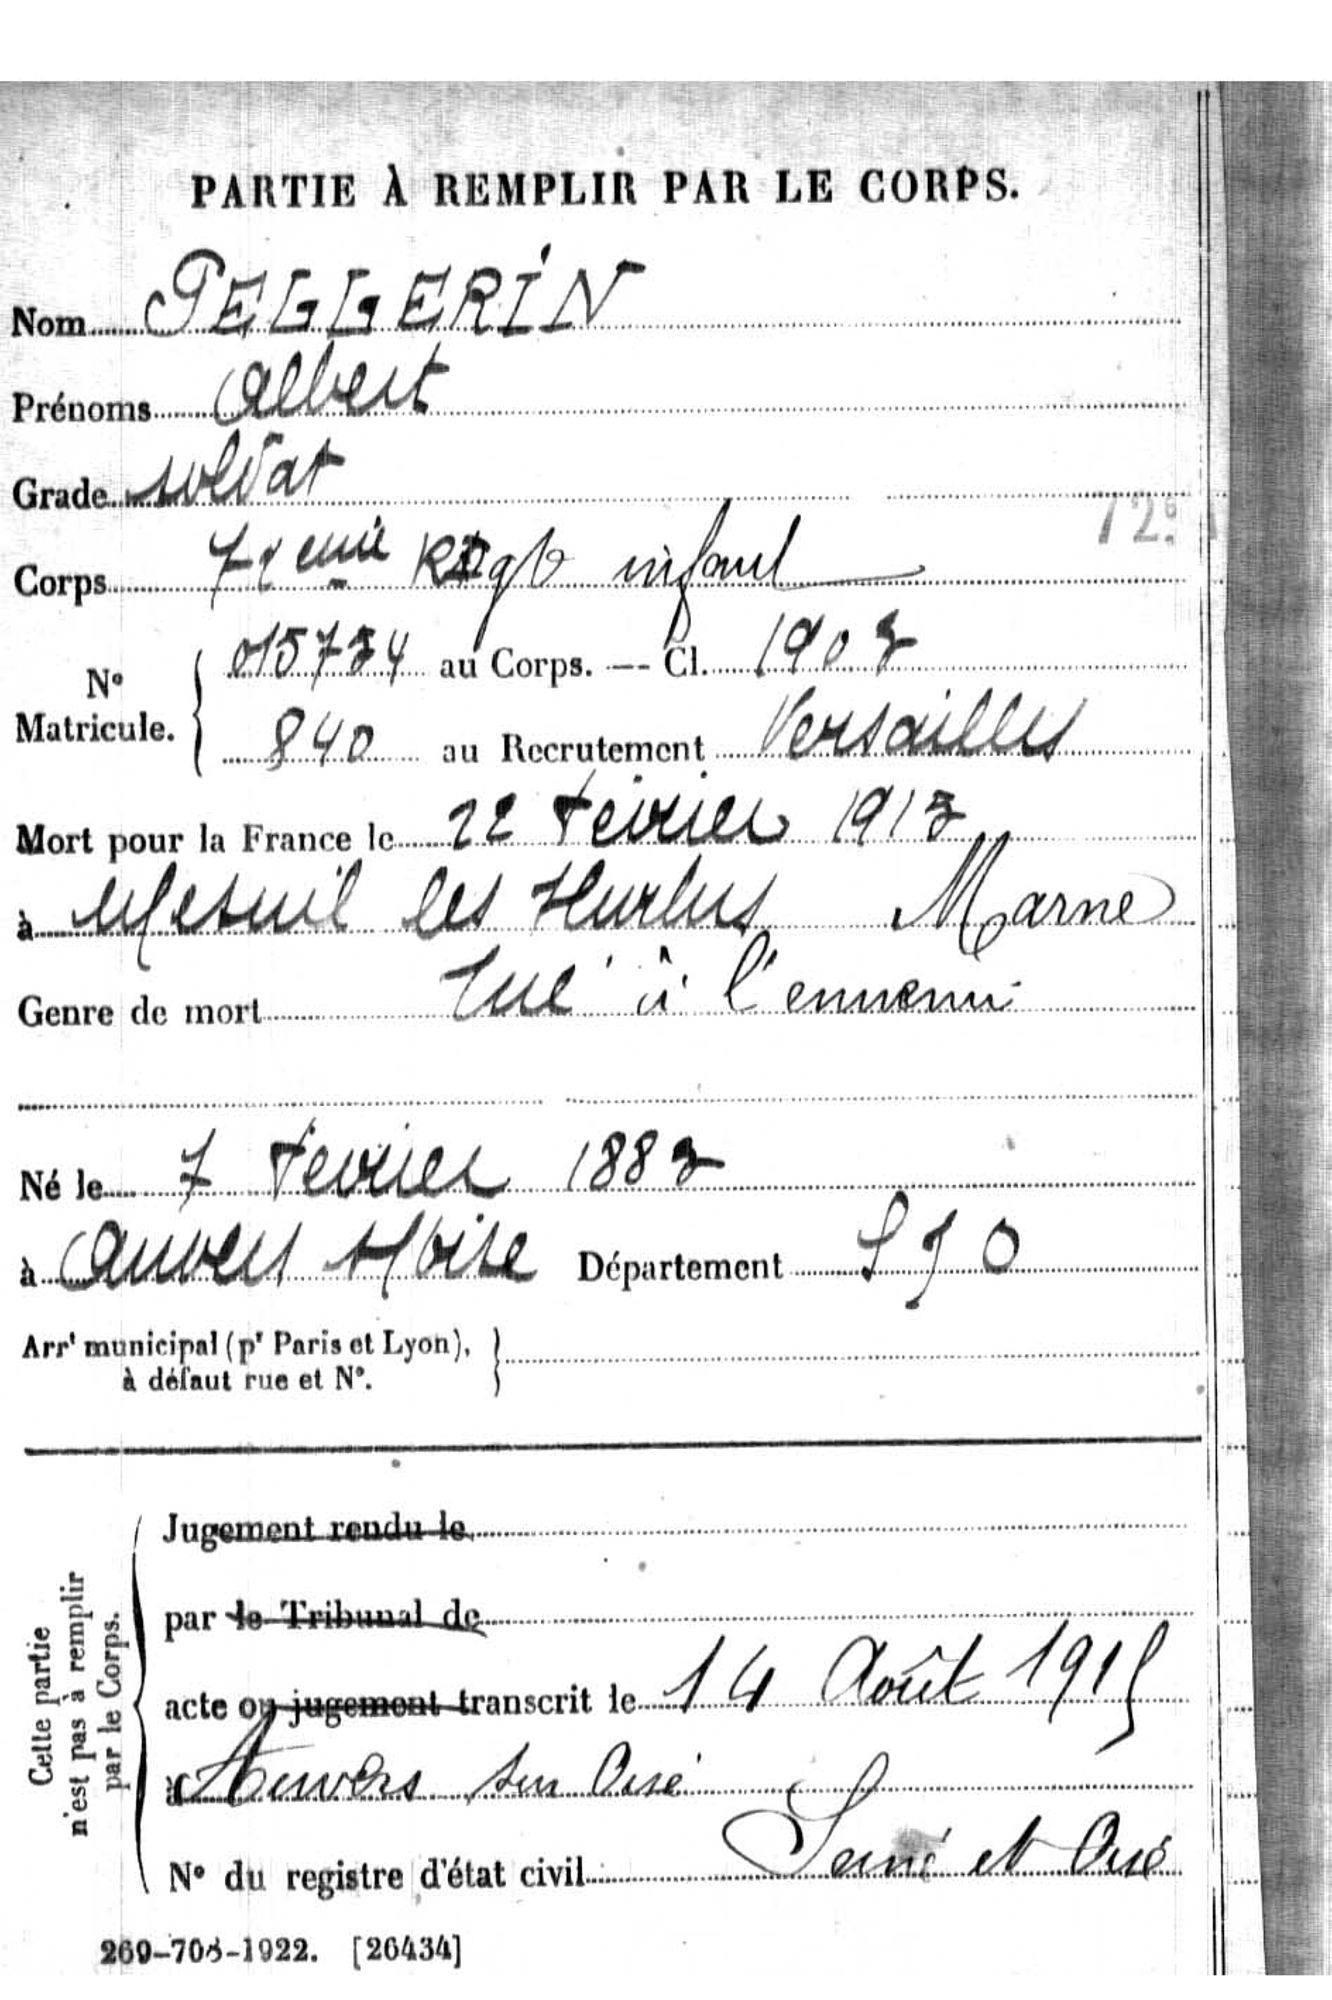 PARTIE À REMPLIR PAR LE CORPS.
Nom PELLERIN
Prénoms Albert
Grade soldat
72e
Corps 72eme Regt infant
015734 au Corps. — Cl. 1902
N° Matricule.
840 au Recrutement Versailles
Mort pour la France le 22 Février 1915
à Mesnil les Hurlus Marne
Genre de mort Tué à l'ennemi
Né le 7 Février 1882
à Auvers s/Oise Département S J O
Arrt municipal (pr Paris et Lyon),
à défaut rue et N°.
Cette partie
n'est pas à remplir
par le Corps.
Jugement rendu le
par le Tribunal de
acte ou jugement transcrit le 14 Août 1915
à Auvers sur Oise
Seine et Oise
N° du registre d'état civil
269-708-1922. [26434]